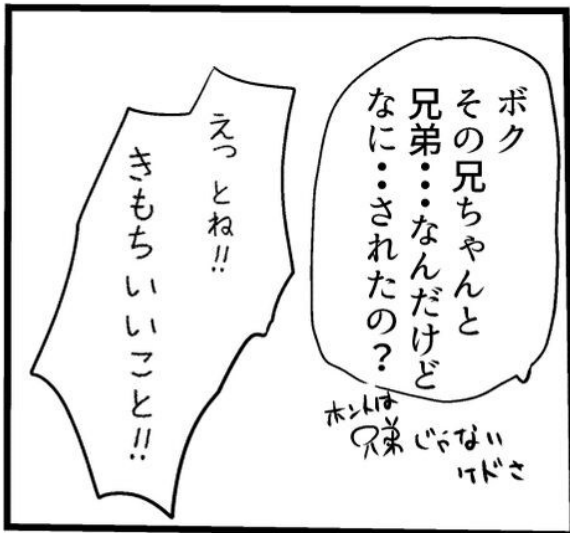 ボク
その兄ちゃんと
兄弟・・・なんだけど
なに・・されたの？
ホントは
兄弟じゃない
けどさ
えっとね!!
きもちいいこと!!